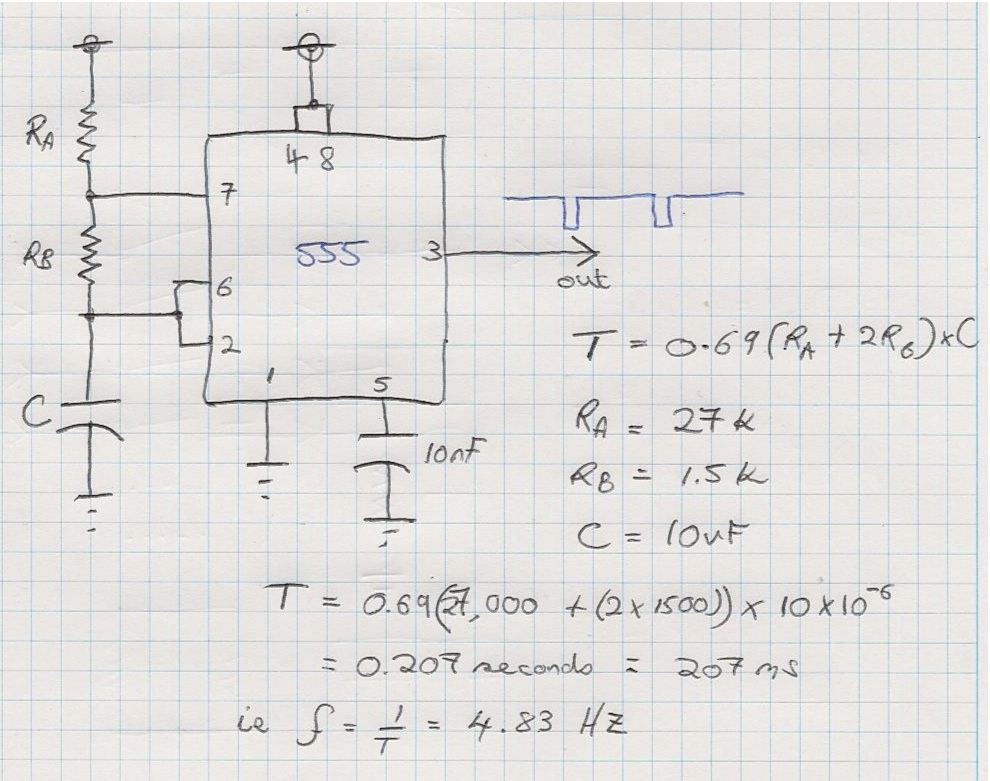 R_A
4 8
7
R_B
555
3
out
6
2
T = 0.69(R_A + 2R_B)×C
1
5
C
10nF
R_A = 27k
R_B = 1.5k
C = 10uF
T = 0.69(27,000 + (2×1500)) × 10×10⁻⁶
= 0.207 seconds = 207 ms
ie f = 1/T = 4.83 HZ